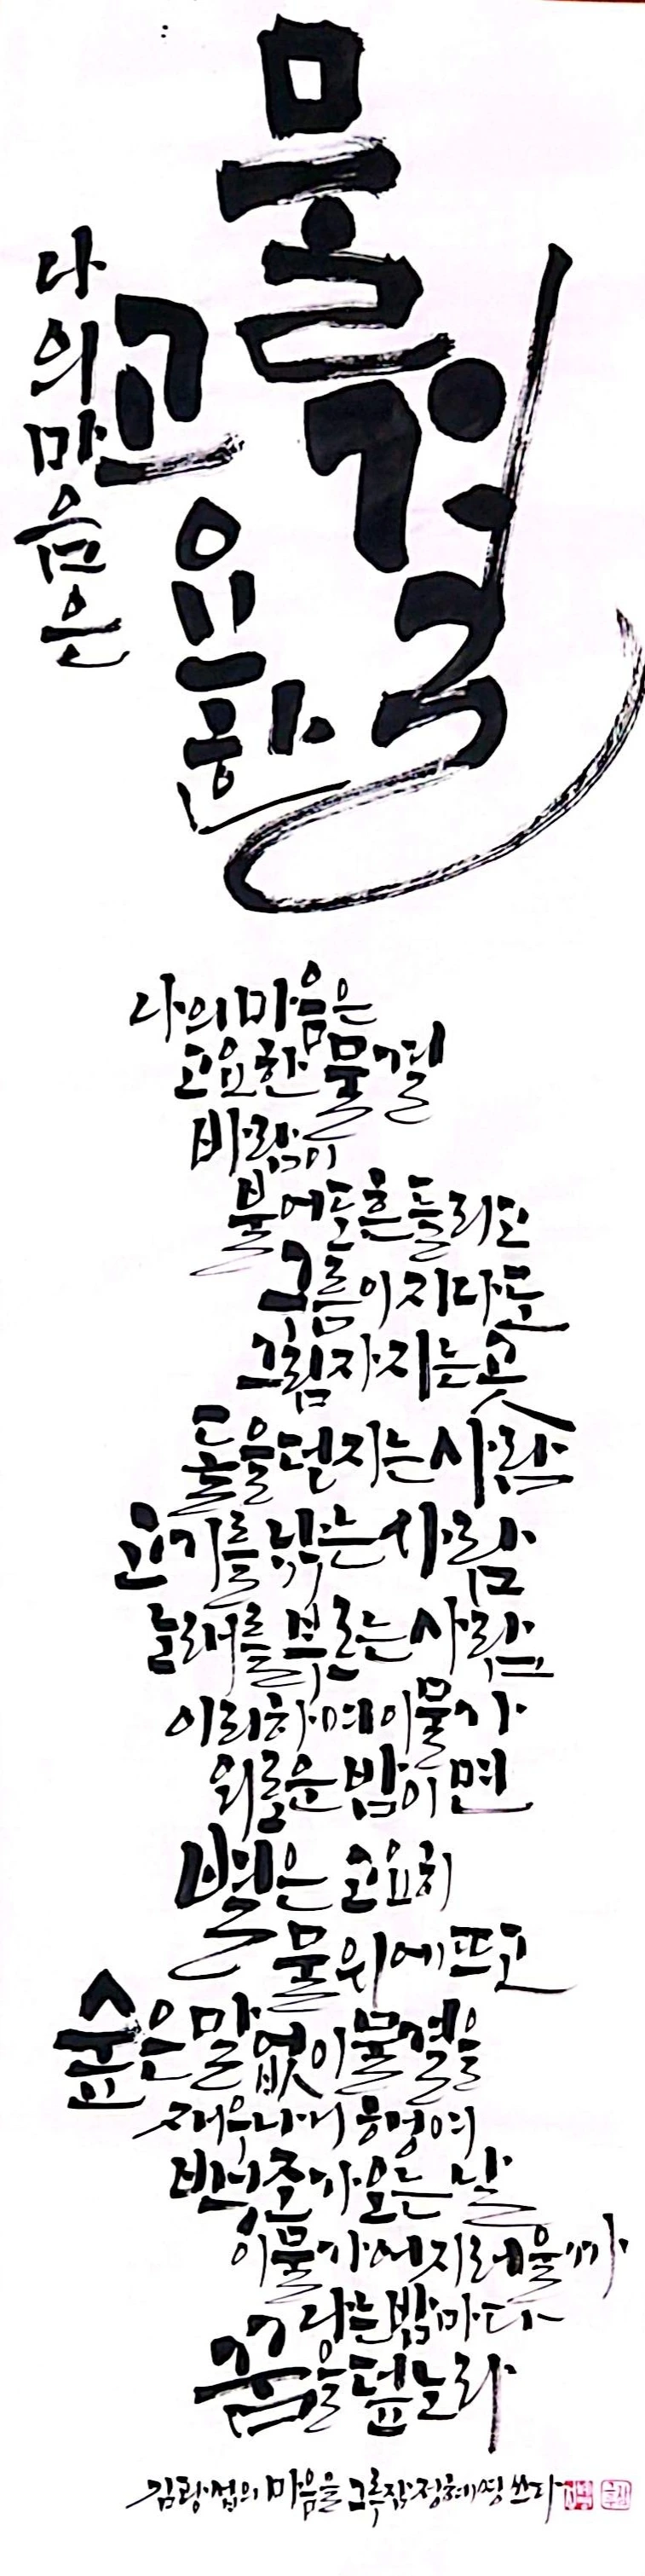 나의 마음은
고요한
물결
나의 마음은
고요한 물결
바람이
불어도 흔들리고
구름이 지다도
그림자 지는 곳
돌을 던지는 사람
고기를 낚는 사람
노래를 부르는 사람
이리하여 이 물가
외로운 밤이면
별은 고요히
물 위에 뜨고
숲은 말없이 물결을
재우나니 행여
백조가 오는 날
이 물가 어지러울까
나는 밤마다
꿈을 덮노라
김광섭의 마음을 그루작 정혜영 쓰다